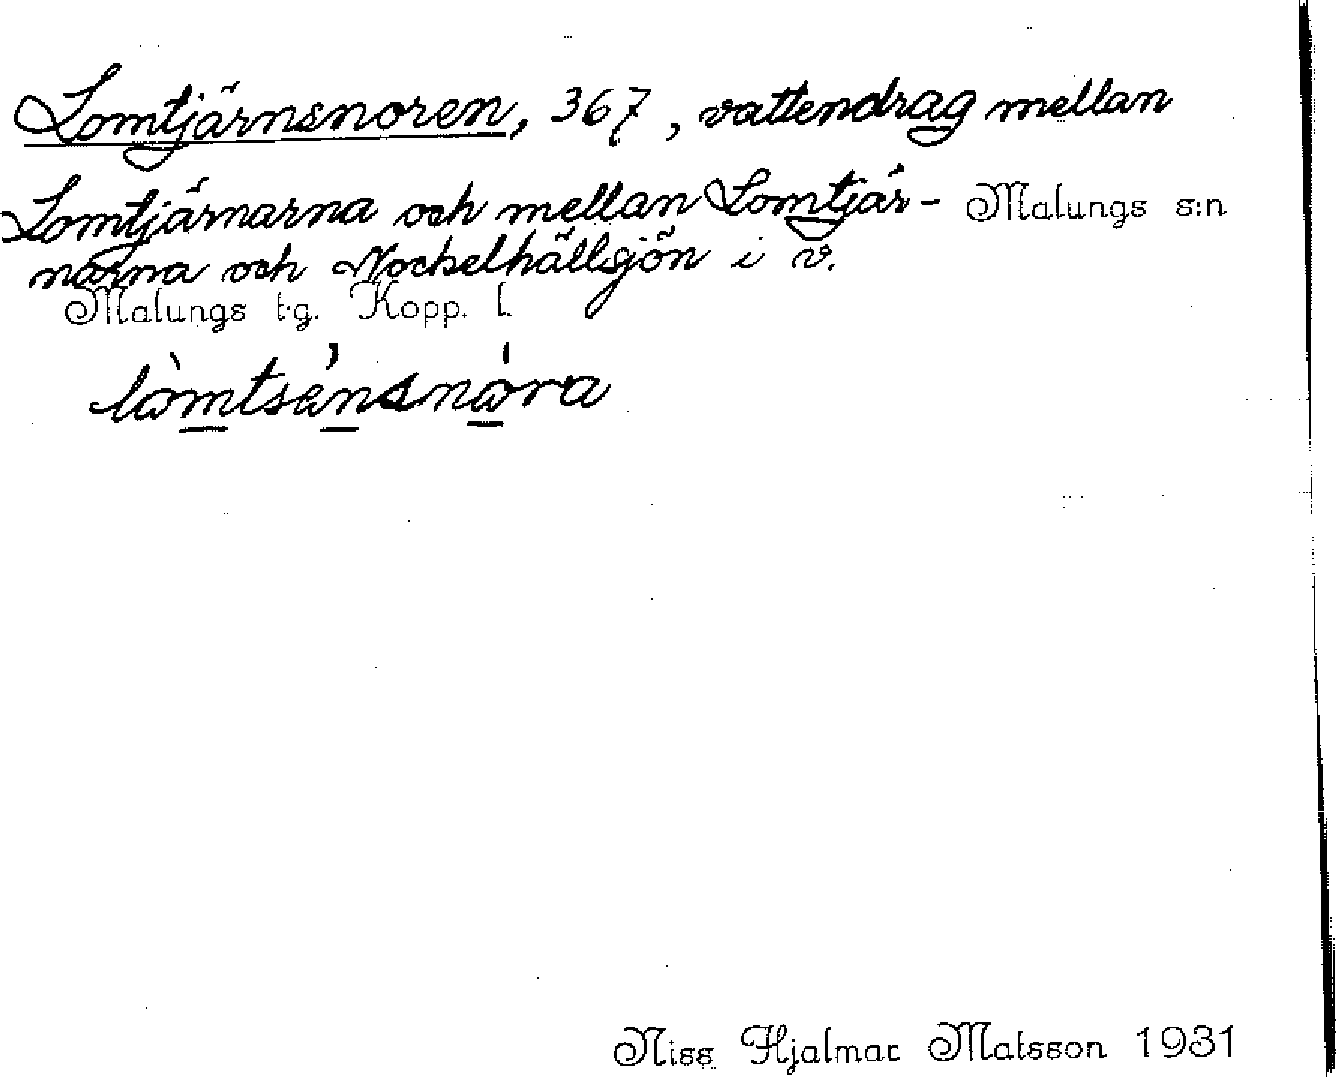 Lomtjärnsnoren, 367, vattendrag mellan
Lomtjärnarna och mellan Lomtjär-
narna och Nockelhällsjön i v.
Malungs s:n
Malungs t.g. Kopp. l.
lòmtsénsnȧra
Niss Hjalmar Matsson 1931